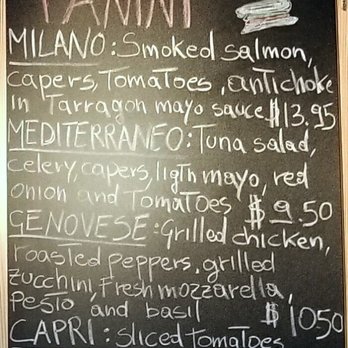 PANINI
MILANO: Smoked salmon,
capers, Tomatoes, antichoke
In Tarragon mayo sauce $13.95
MEDITERRANEO: Tuna salad,
celery, capers, ligth mayo, red
onion and Tomatoes $9.50
GENOVESE: Grilled chicken,
roasted peppers, grilled
zucchini, Fresh mozzarella,
pesto and basil $1050
CAPRI: Sliced tomatoes